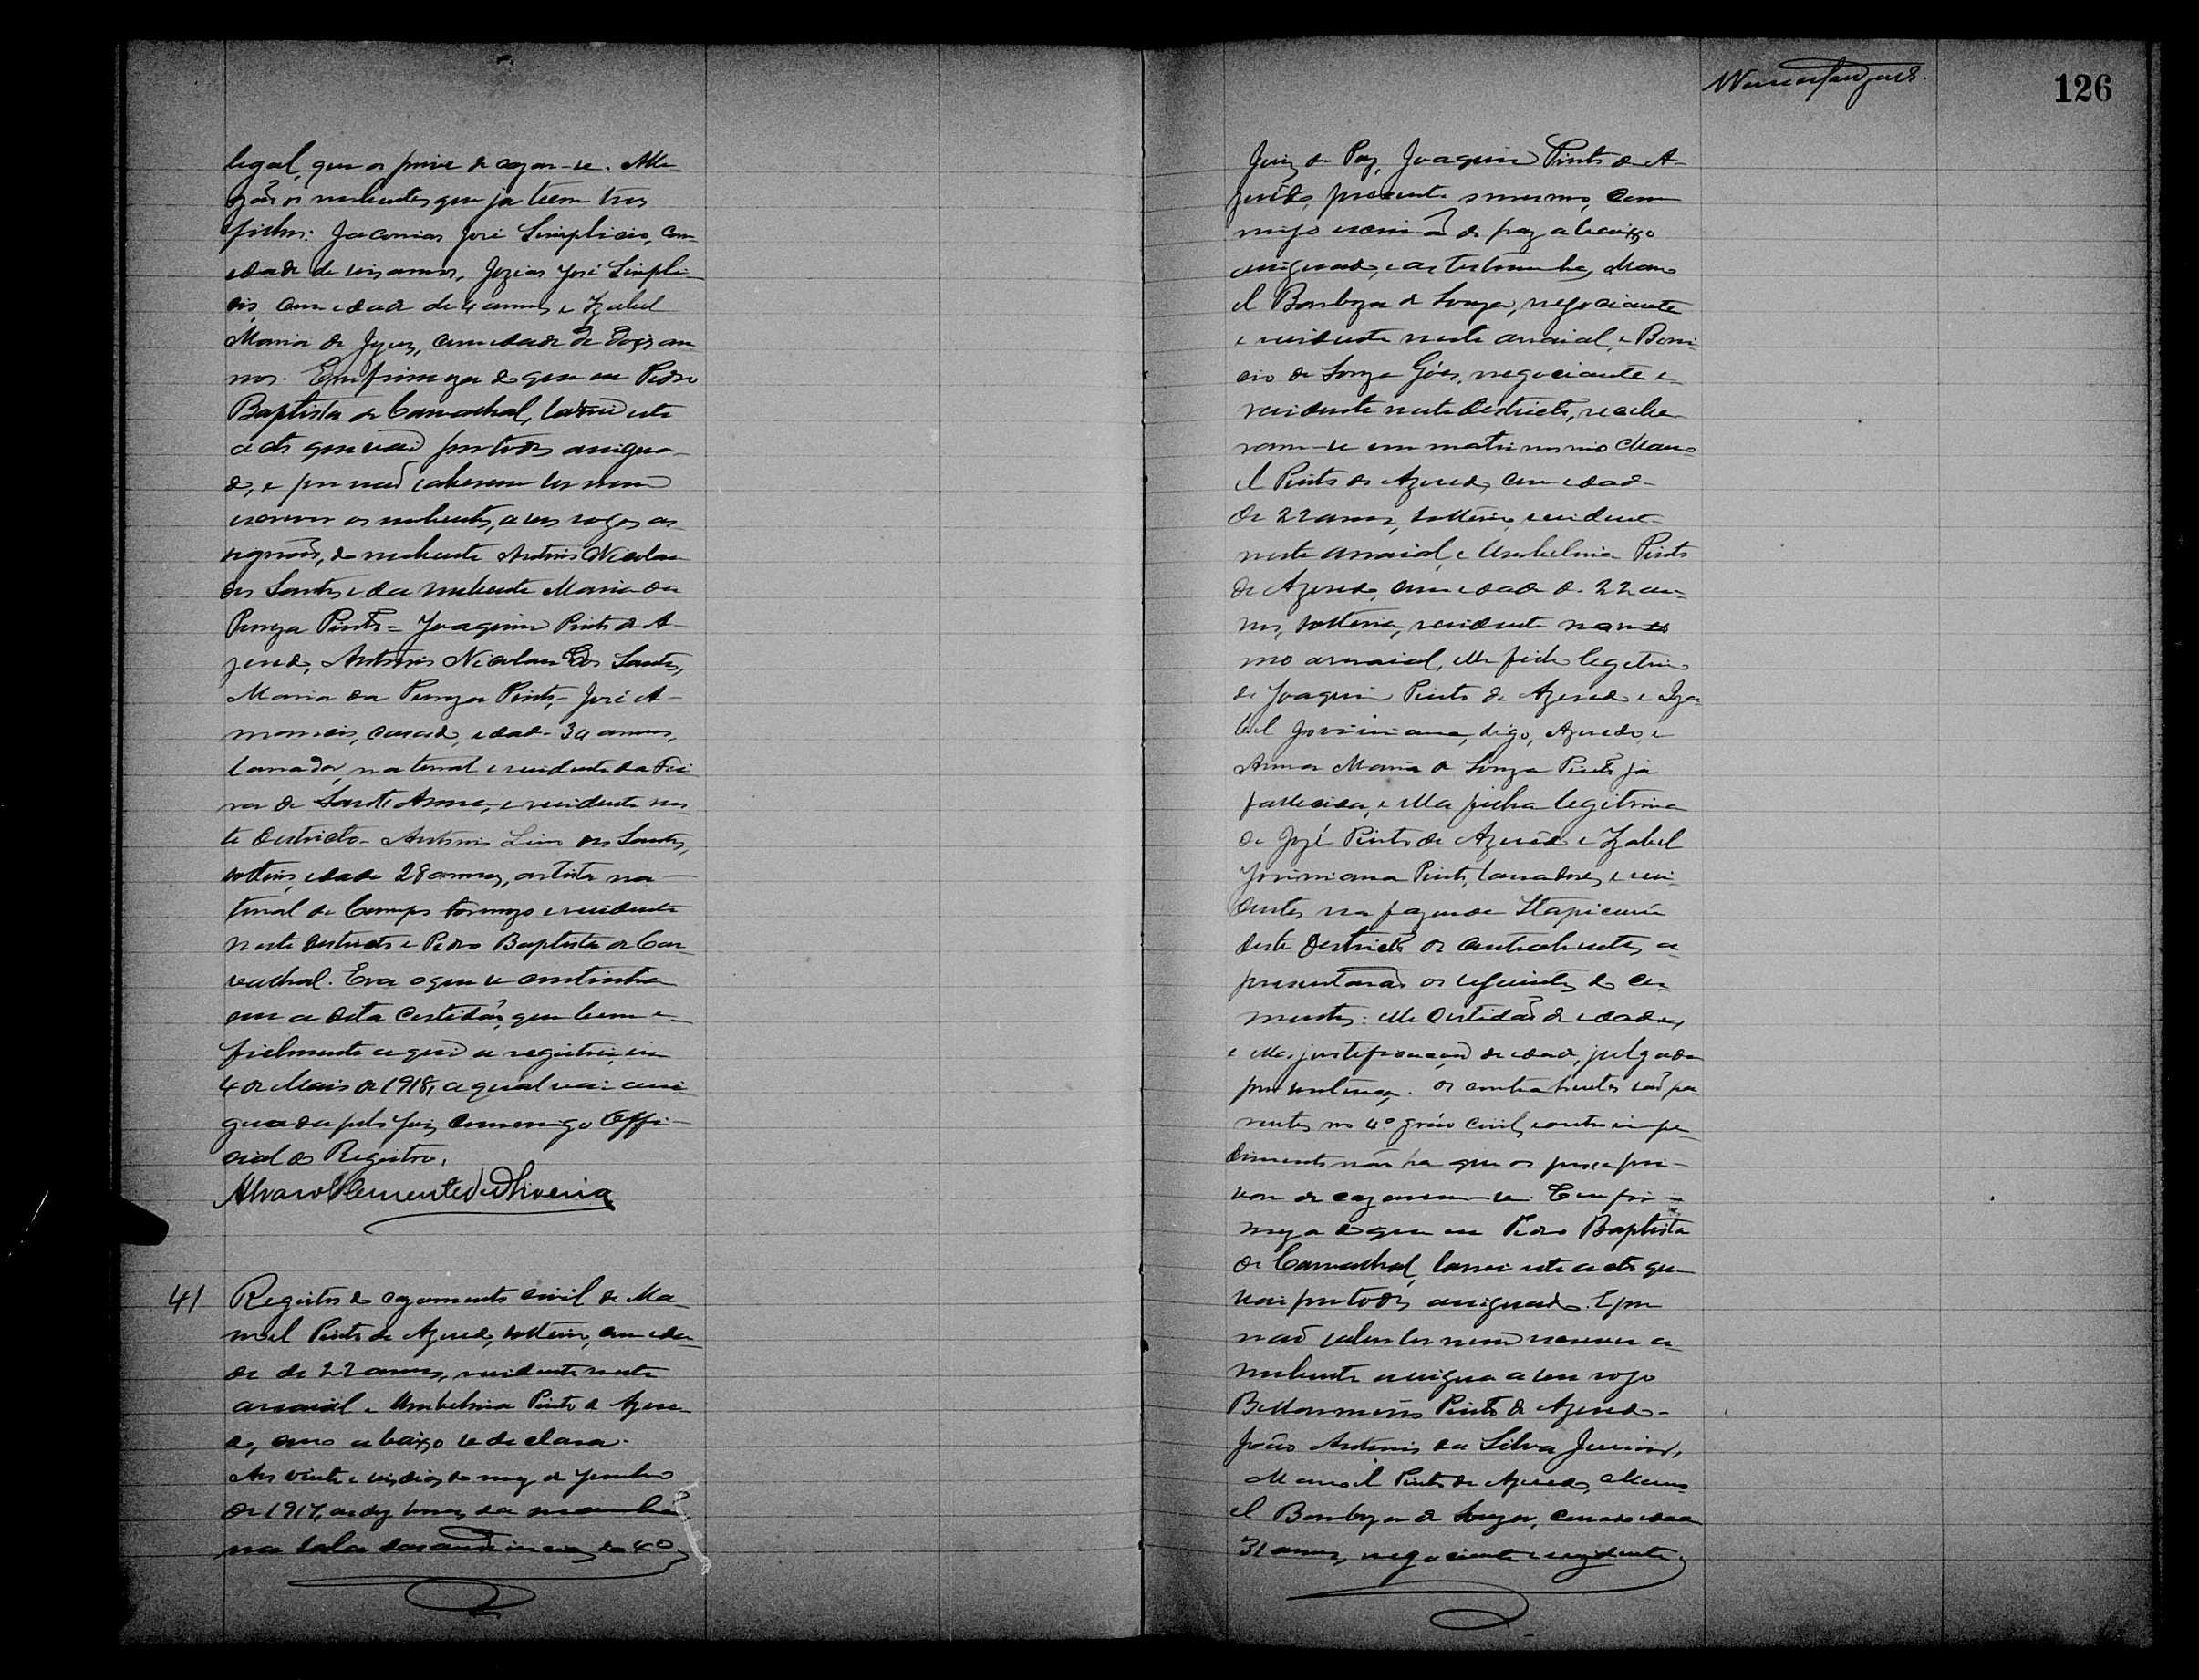 legal, que os prive de cazar-se. Alle
gão os nubentes que ja teem tres
filhos: Jaconias José Simplicio, com
edade de seis annos, Jozias José Simpli-
cio, com edade de 4 annos, e Izabel
Maria de Jezus, com edade de dois an
nos. Em firmeza do que eu Pedro
Baptista de Carvalhal, lavrei este
acto que vai por todos assigna-
do, e por não saberem ler nem
escrever os nubentes, a seus rogos as
signão, do nubente Antonio Nicolau
dos Santos e da nubente Maria da
Pureza Pinto = Joaquim Pinto de A-
zeredo, Antonio Nicolau dos Santos,
Maria da Pureza Pinto, José A-
mancio, casado, edade 34 annos,
lavrador, natural e residente da Fei
ra de Sant'Anna, e residente nes
te Districto - Antonio Lino dos Santos,
solteiro, edade 28 annos, artista na-
tural de Campo Formozo e residente
neste Districto e Pedro Baptista de Car
valhal. Era o que se continha
em a dita certidão, que bem e
fielmente aqui a registrei, em
4 de Maio de 1918, a qual vai assi
gnada pelo Juiz commigo Offi-
cial do Registro.
Alvaro Clemente de Oliveira
41 Registro do cazamento civil de Ma-
noel Pinto de Azeredo, solteiro, com eda-
de de 22 annos, residente neste
arraial e Umbelina Pinto de Azere-
do, como abaixo se declara.
Aos vinte e seis dias do mez de Junho
de 1917, as dez horas da manhã,
na sala das audiencias do 4º
126
Juiz de Paz, Joaquim Pinto de A-
zerêdo, presente o mesmo, com
migo escrivão de paz abaixo
assignado, e as testemunhas, Mano
el Barboza de Souza, negociante
e residente neste arraial, e Boni-
cio de Souza Góes, negociante e
residente neste Districto, recebe-
ram-se em matrimonio Mano
el Pinto de Azeredo, com edade
de 22 annos, solteiro, residente
neste arraial, e Umbelina Pinto
de Azeredo, com edade de 22 an-
nos, solteira, residente no mes
mo arraial, elle filho legitimo
de Joaquim Pinto de Azeredo e Iza
bel Joviniana, digo, Azeredo, e
Anna Maria de Souza Pinto já
fallecida, e ella filha legitima
de José Pinto de Azeredo e Izabel
Joviniana Pinto, lavradores e resi-
dentes na fazenda Itapicurú
deste Districto os contrahentes a
presentarão os seguintes do cu-
mentos: elle certidão de edade,
e ella justificação de edade, julgada
por sentença. Os contrahentes são pa-
rentes no 4º gráo civil, e outro impe-
dimento não ha que os possa pri-
var de cazarem-se. Em fir-
meza do que eu Pedro Baptista
de Carvalhal, lavrei este acto que
vai por todos assignado. E por
não saber ler nem escrever a
nubente assigna a seu rogo
Bellarmino Pinto de Azeredo -
João Antonio da Silva Junior,
Manoel Pinto de Azeredo, Mano
el Barboza de Souza, casado edade
31 annos, negociante e rezidente